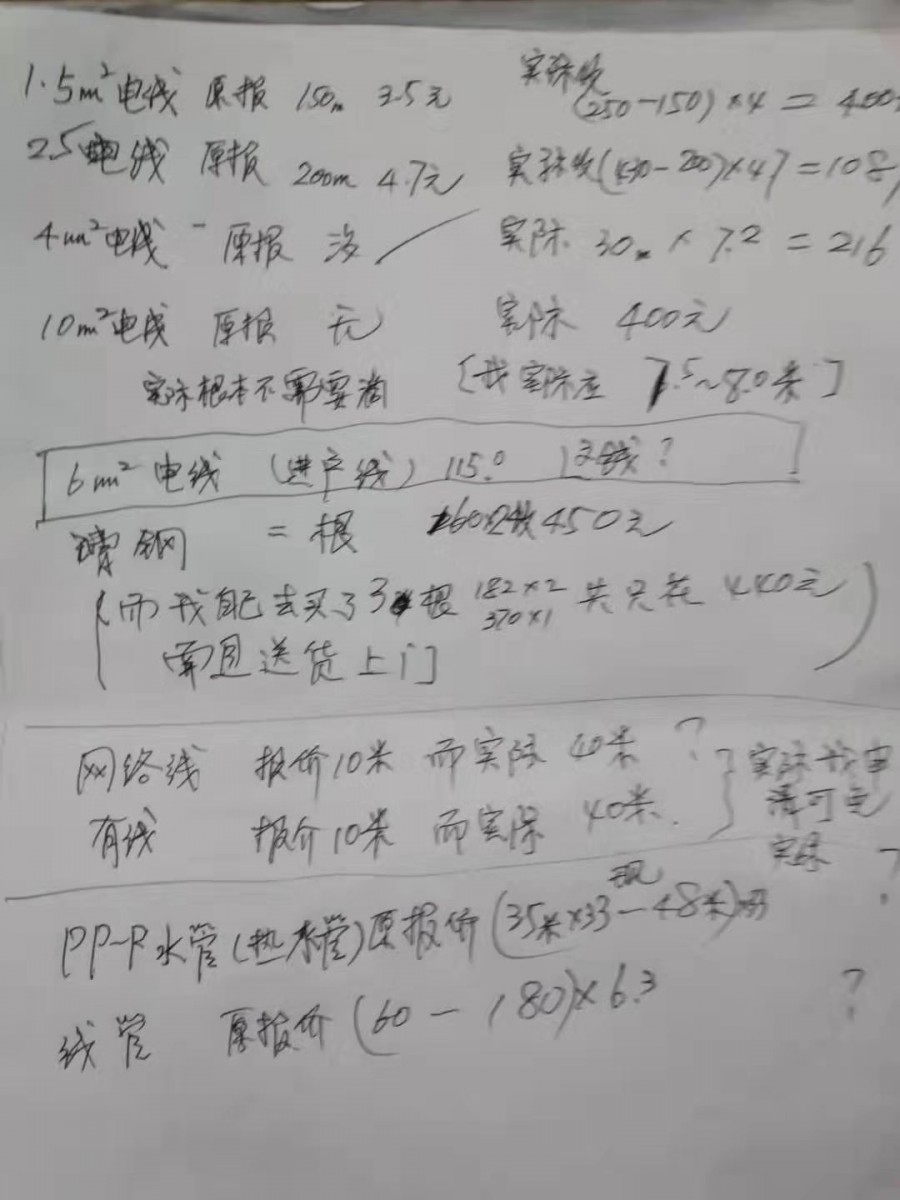 1.5m² 电线 原报 150m 3.5元 实际收 (250-150)×4=400
2.5 电线 原报 200m 4.7元 实际收(430-200)×4.7=108
4m² 电线 原报 没 实际 30m × 7.2 = 216
10m² 电线 原报 无 实际 400元
实际根本不需要 [我实际应 7.5~8.0米]
6m² 电线 (进户线) 115.0 ?
钢 = 根 450元
(而我自己去买了3根 182×2 370×1 共只花 440元
而且送货上门)
网络线 报价10米 而实际 40米 ?
有线 报价10米 而实际 40米.
实际我申
请可免
实际 ?
PP-R水管(热水管)原报价(35米×33-48米)
线管 原报价(60-180)×6.3 ?